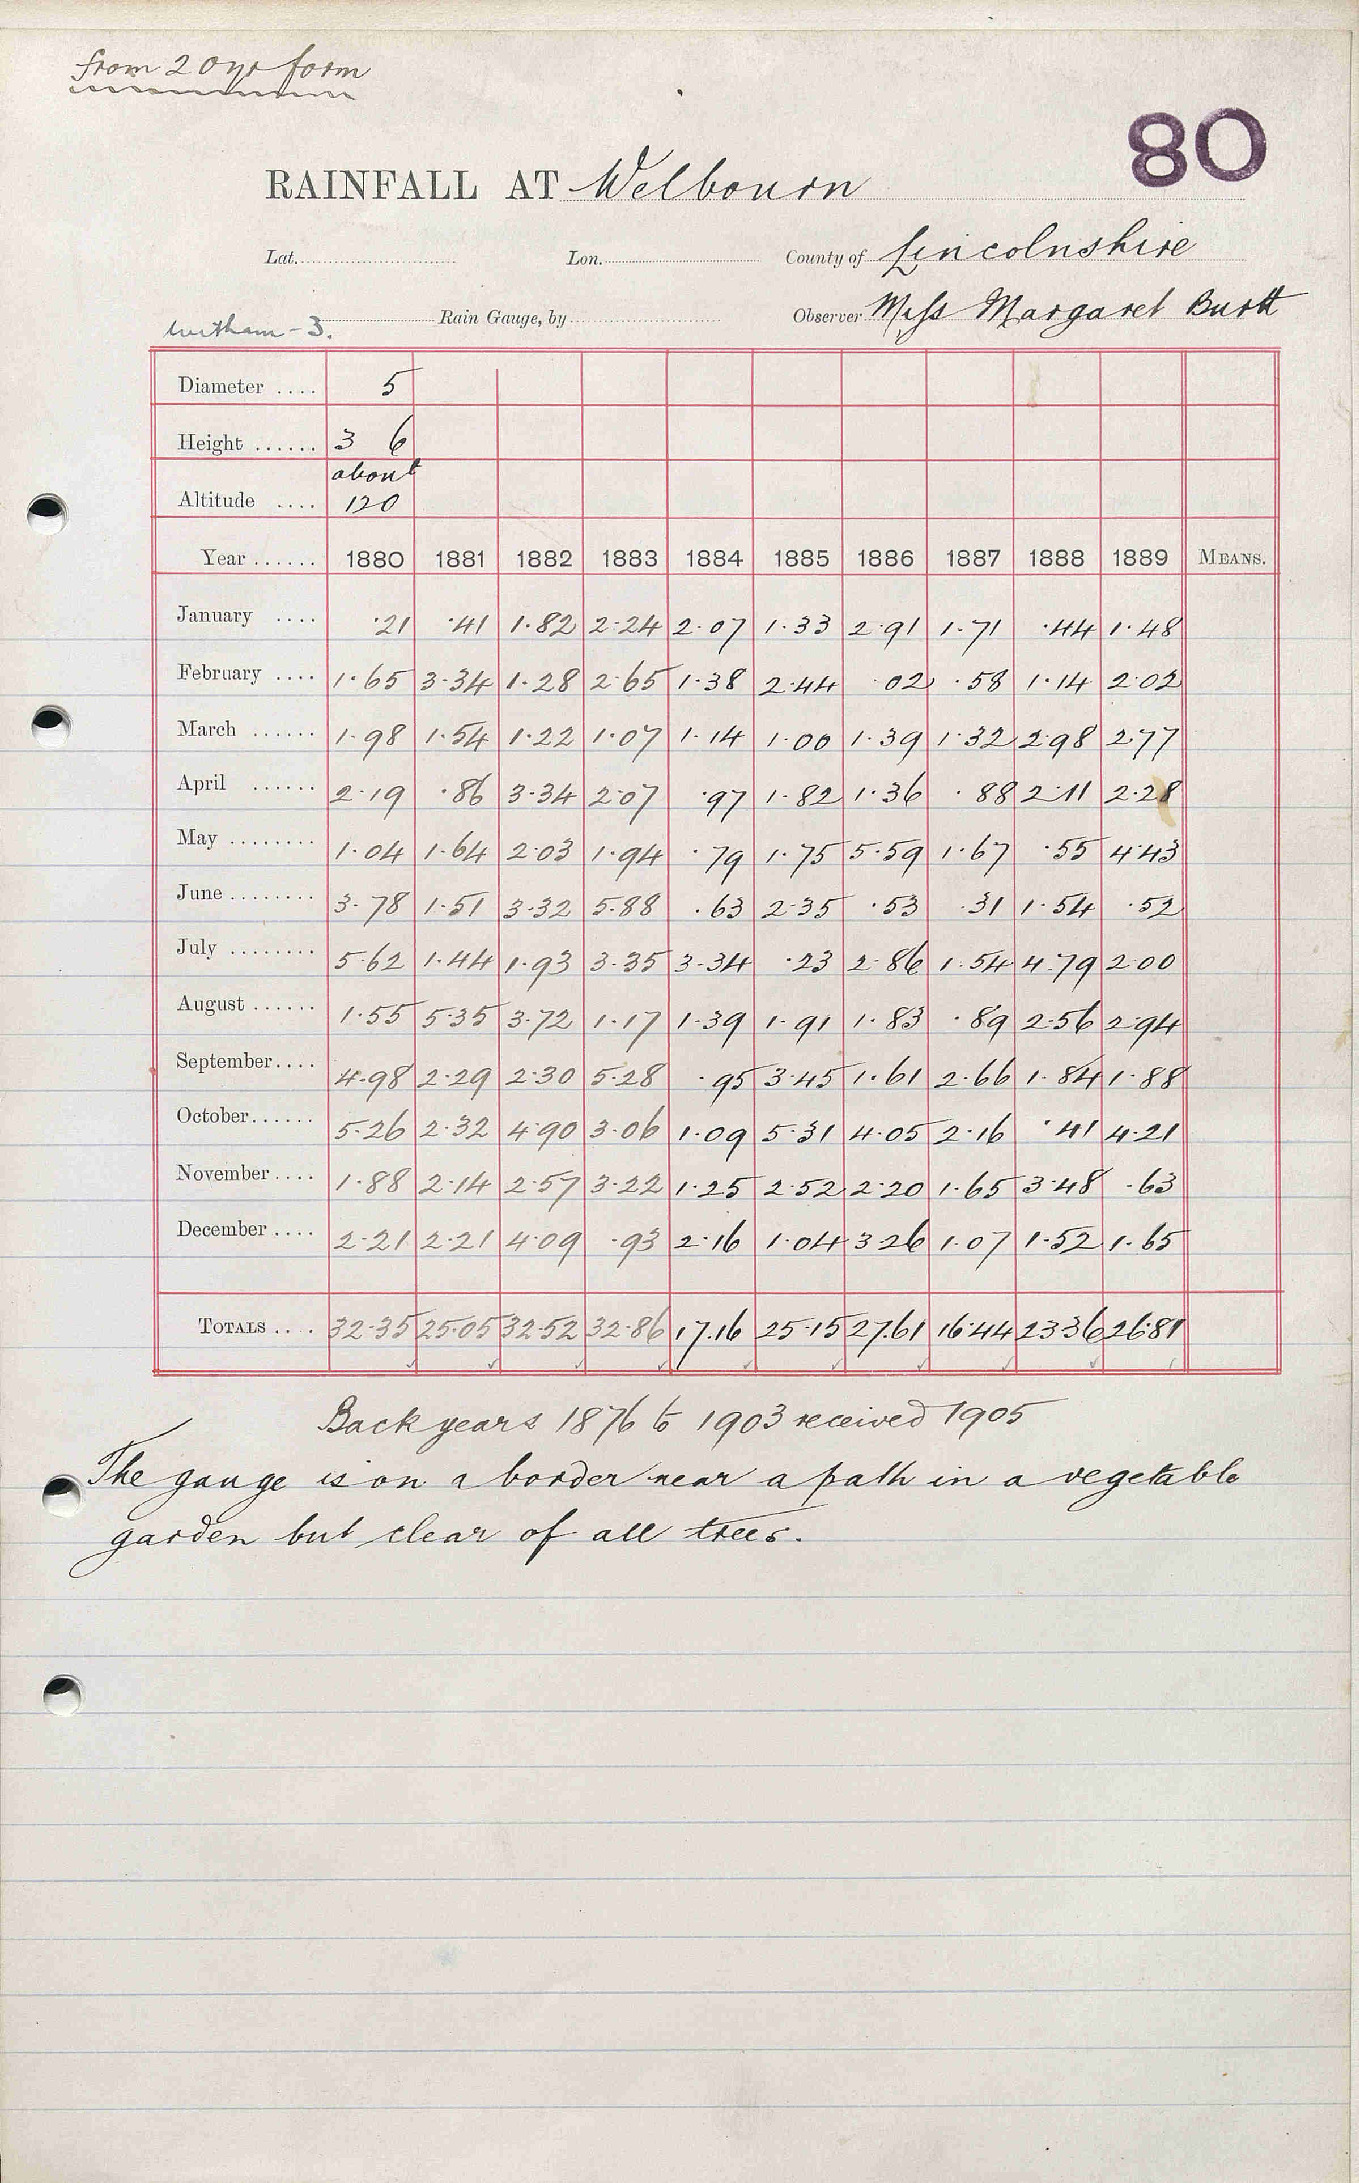 from 20 yr form
80
RAINFALL AT Welbourn
Lat. Lon. County of Lincolnshire
Witham - 3. Rain Gauge, by Observer Miss Margaret Burtt
Diameter .... 5
Height ...... 3 6
Altitude .... about 120
Year ...... 1880 1881 1882 1883 1884 1885 1886 1887 1888 1889 MEANS.
January .... ·21 ·41 1·82 2·24 2·07 1·33 2·91 1·71 ·44 1·48
February .... 1·65 3·34 1·28 2·65 1·38 2·44 ·02 ·58 1·14 2·02
March ...... 1·98 1·54 1·22 1·07 1·14 1·00 1·39 1·32 2·98 2·77
April ...... 2·19 ·86 3·34 2·07 ·97 1·82 1·36 ·88 2·11 2·28
May ........ 1·04 1·64 2·03 1·94 ·79 1·75 5·59 1·67 ·55 4·43
June ........ 3·78 1·51 3·32 5·88 ·63 2·35 ·53 ·31 1·54 ·52
July ........ 5·62 1·44 1·93 3·35 3·34 ·23 2·86 1·54 4·79 2·00
August ...... 1·55 5·35 3·72 1·17 1·39 1·91 1·83 ·89 2·56 2·94
September .... 4·98 2·29 2·30 5·28 ·95 3·45 1·61 2·66 1·84 1·88
October ...... 5·26 2·32 4·90 3·06 1·09 5·31 4·05 2·16 ·41 4·21
November .... 1·88 2·14 2·57 3·22 1·25 2·52 2·20 1·65 3·48 ·63
December .... 2·21 2·21 4·09 ·93 2·16 1·04 3·26 1·07 1·52 1·65
TOTALS .... 32·35 25·05 32·52 32·86 17·16 25·15 27·61 16·44 23·36 26·81
Back years 1876 to 1903 received 1905
The gauge is on a border near a path in a vegetable
garden but clear of all trees.